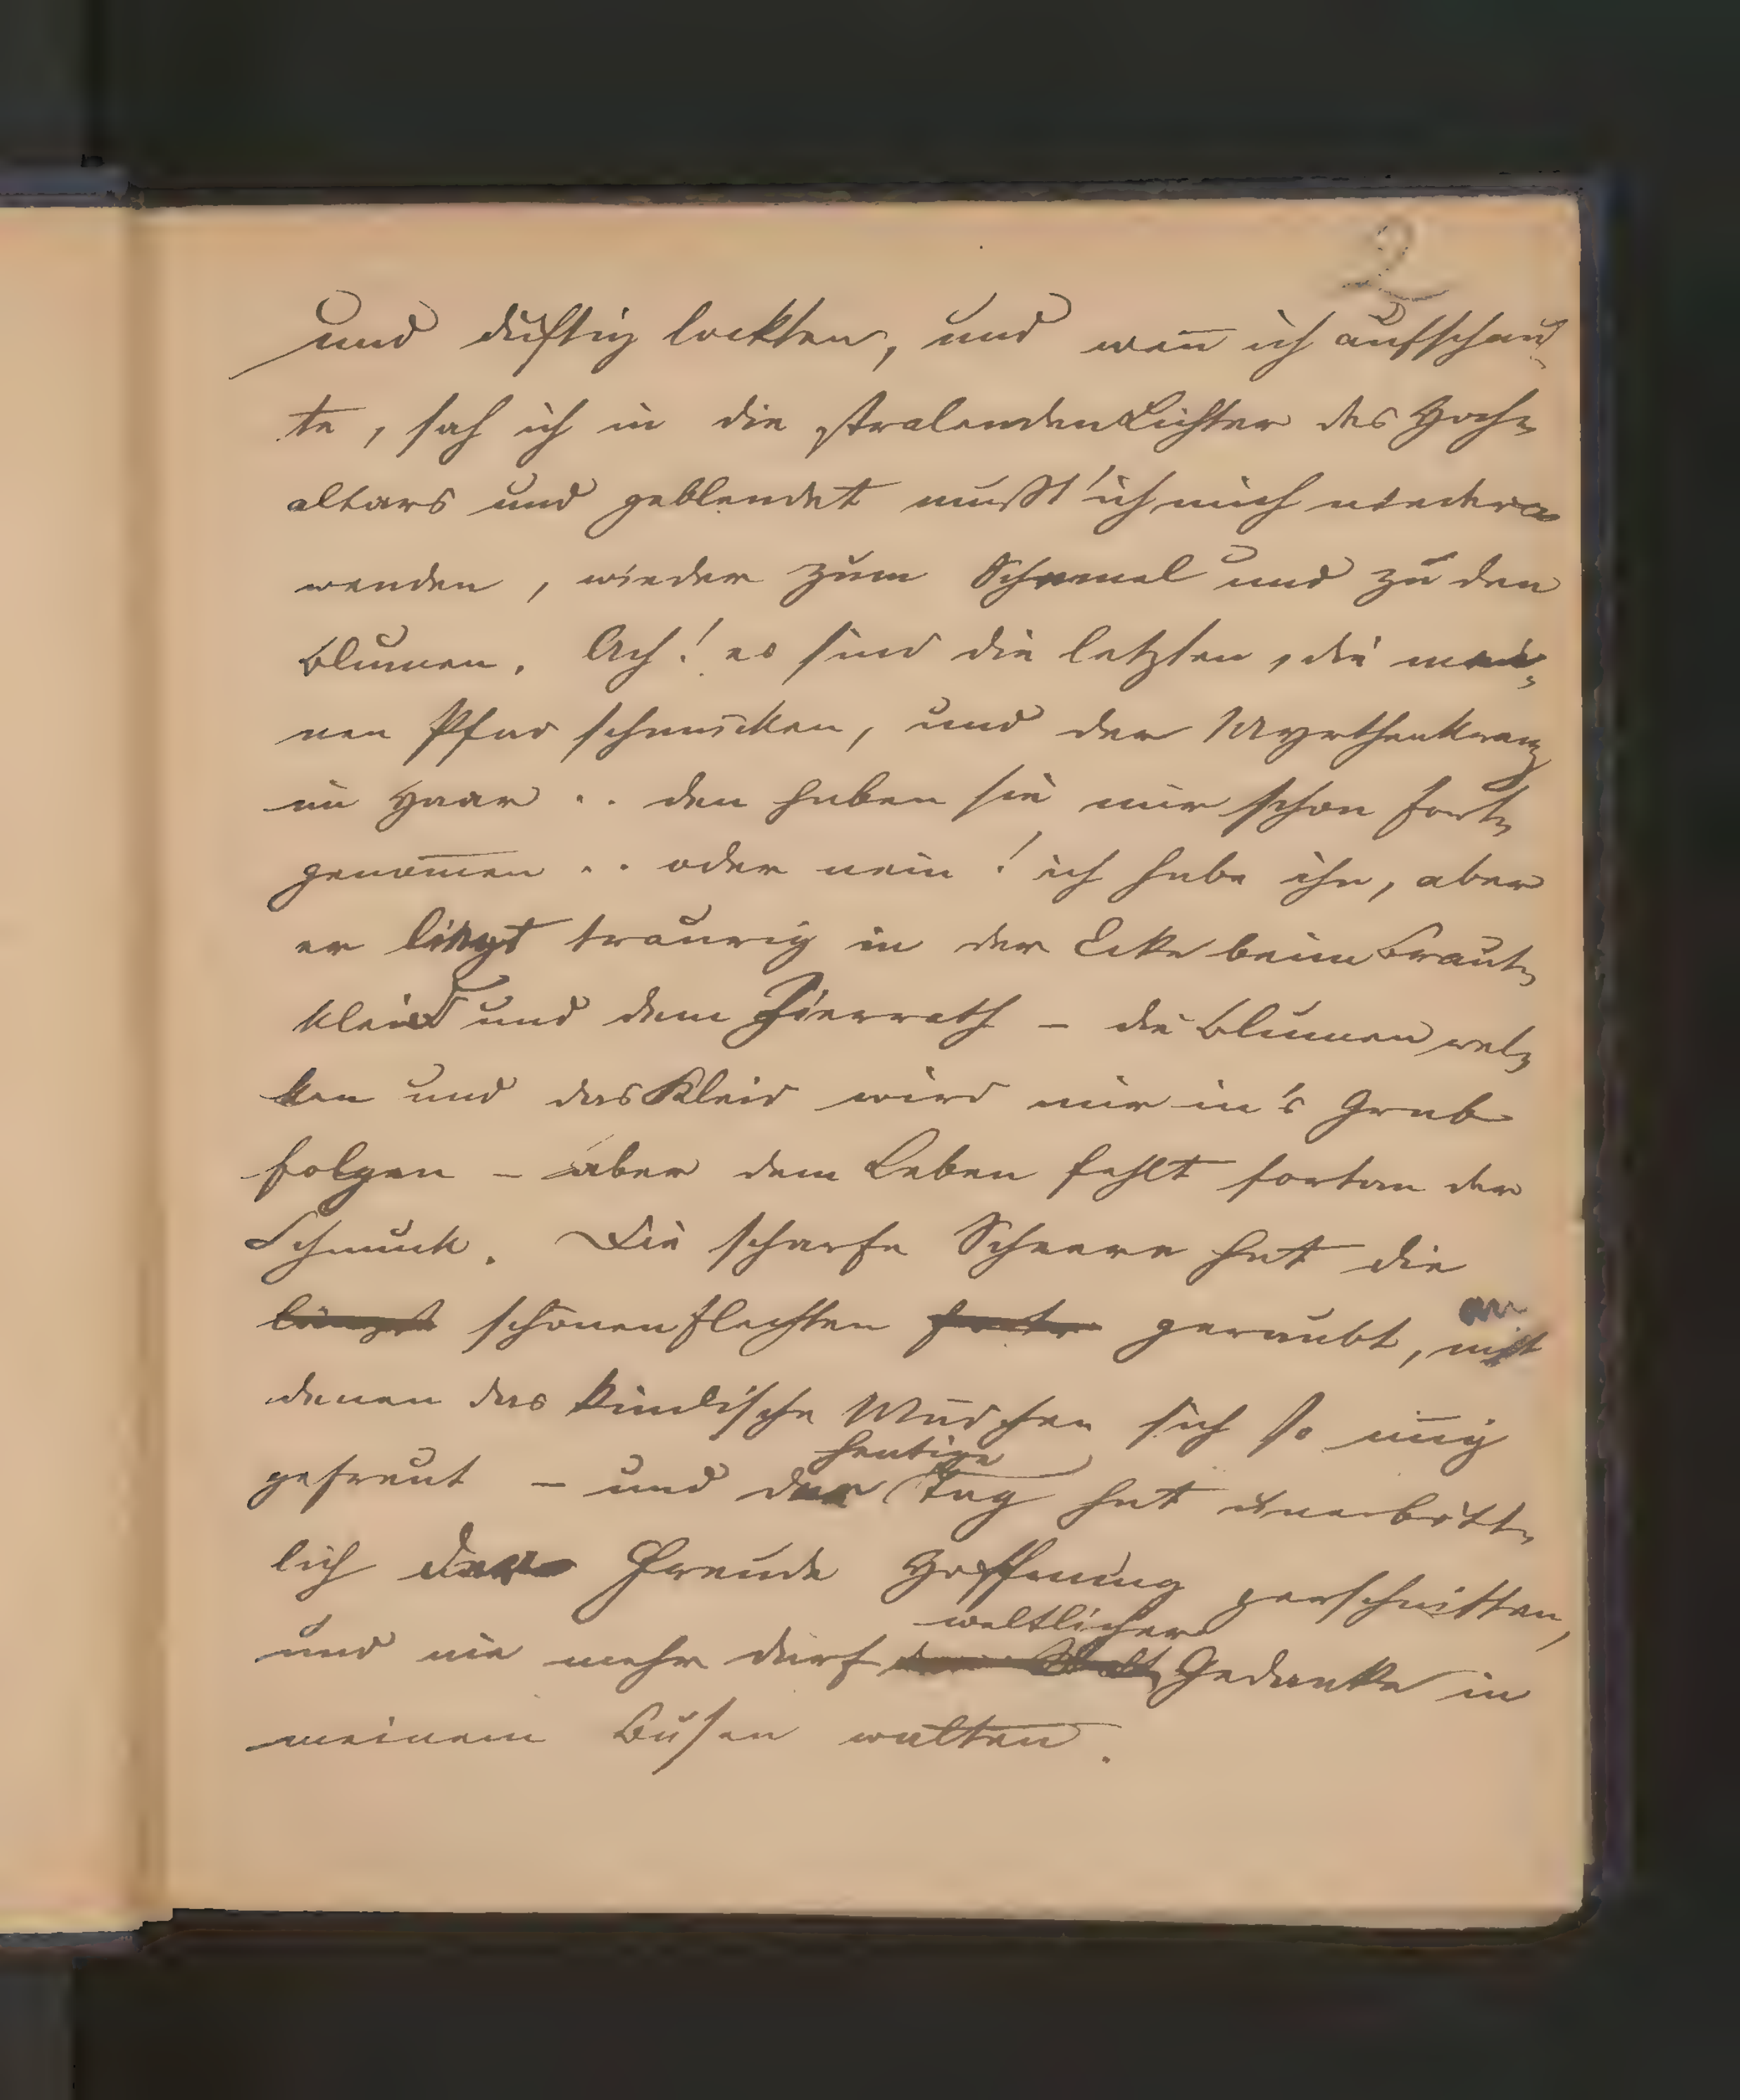 2
und duftig lockten, und wen̄ ich aufschau-
te, sah ich in die stralenden Lichter des Hoch-
altars und geblendet mußt' ich mich nieder-
wenden, wieder zum Schemel und zu den
Blumen. Ach! es sind die letzten, die mei-
nen Pfad schmücken, und der Myrthenkranz
im Haar .. den haben sie mir schon fort-
genom̄en .. oder nein! ich habe ihn, aber
er liegt traurig in der Ecke beim Braut-
kleid und dem Zierrath – die Blumen wel-
ken und das Kleid wird mir in's Grab
folgen – aber dem Leben fehlt fortan der
Schmuck. Die scharfe Scheere hat die
an
schönen Flechten geraubt,
denen das kindische Mädchen sich so in̄ig
heutige
gefreut – und der Tag hat unerbitt-
lich der Freude Hoffnung zerschnitten,
weltlicher
und nie mehr darf Gedanke in
meinem Busen walten.